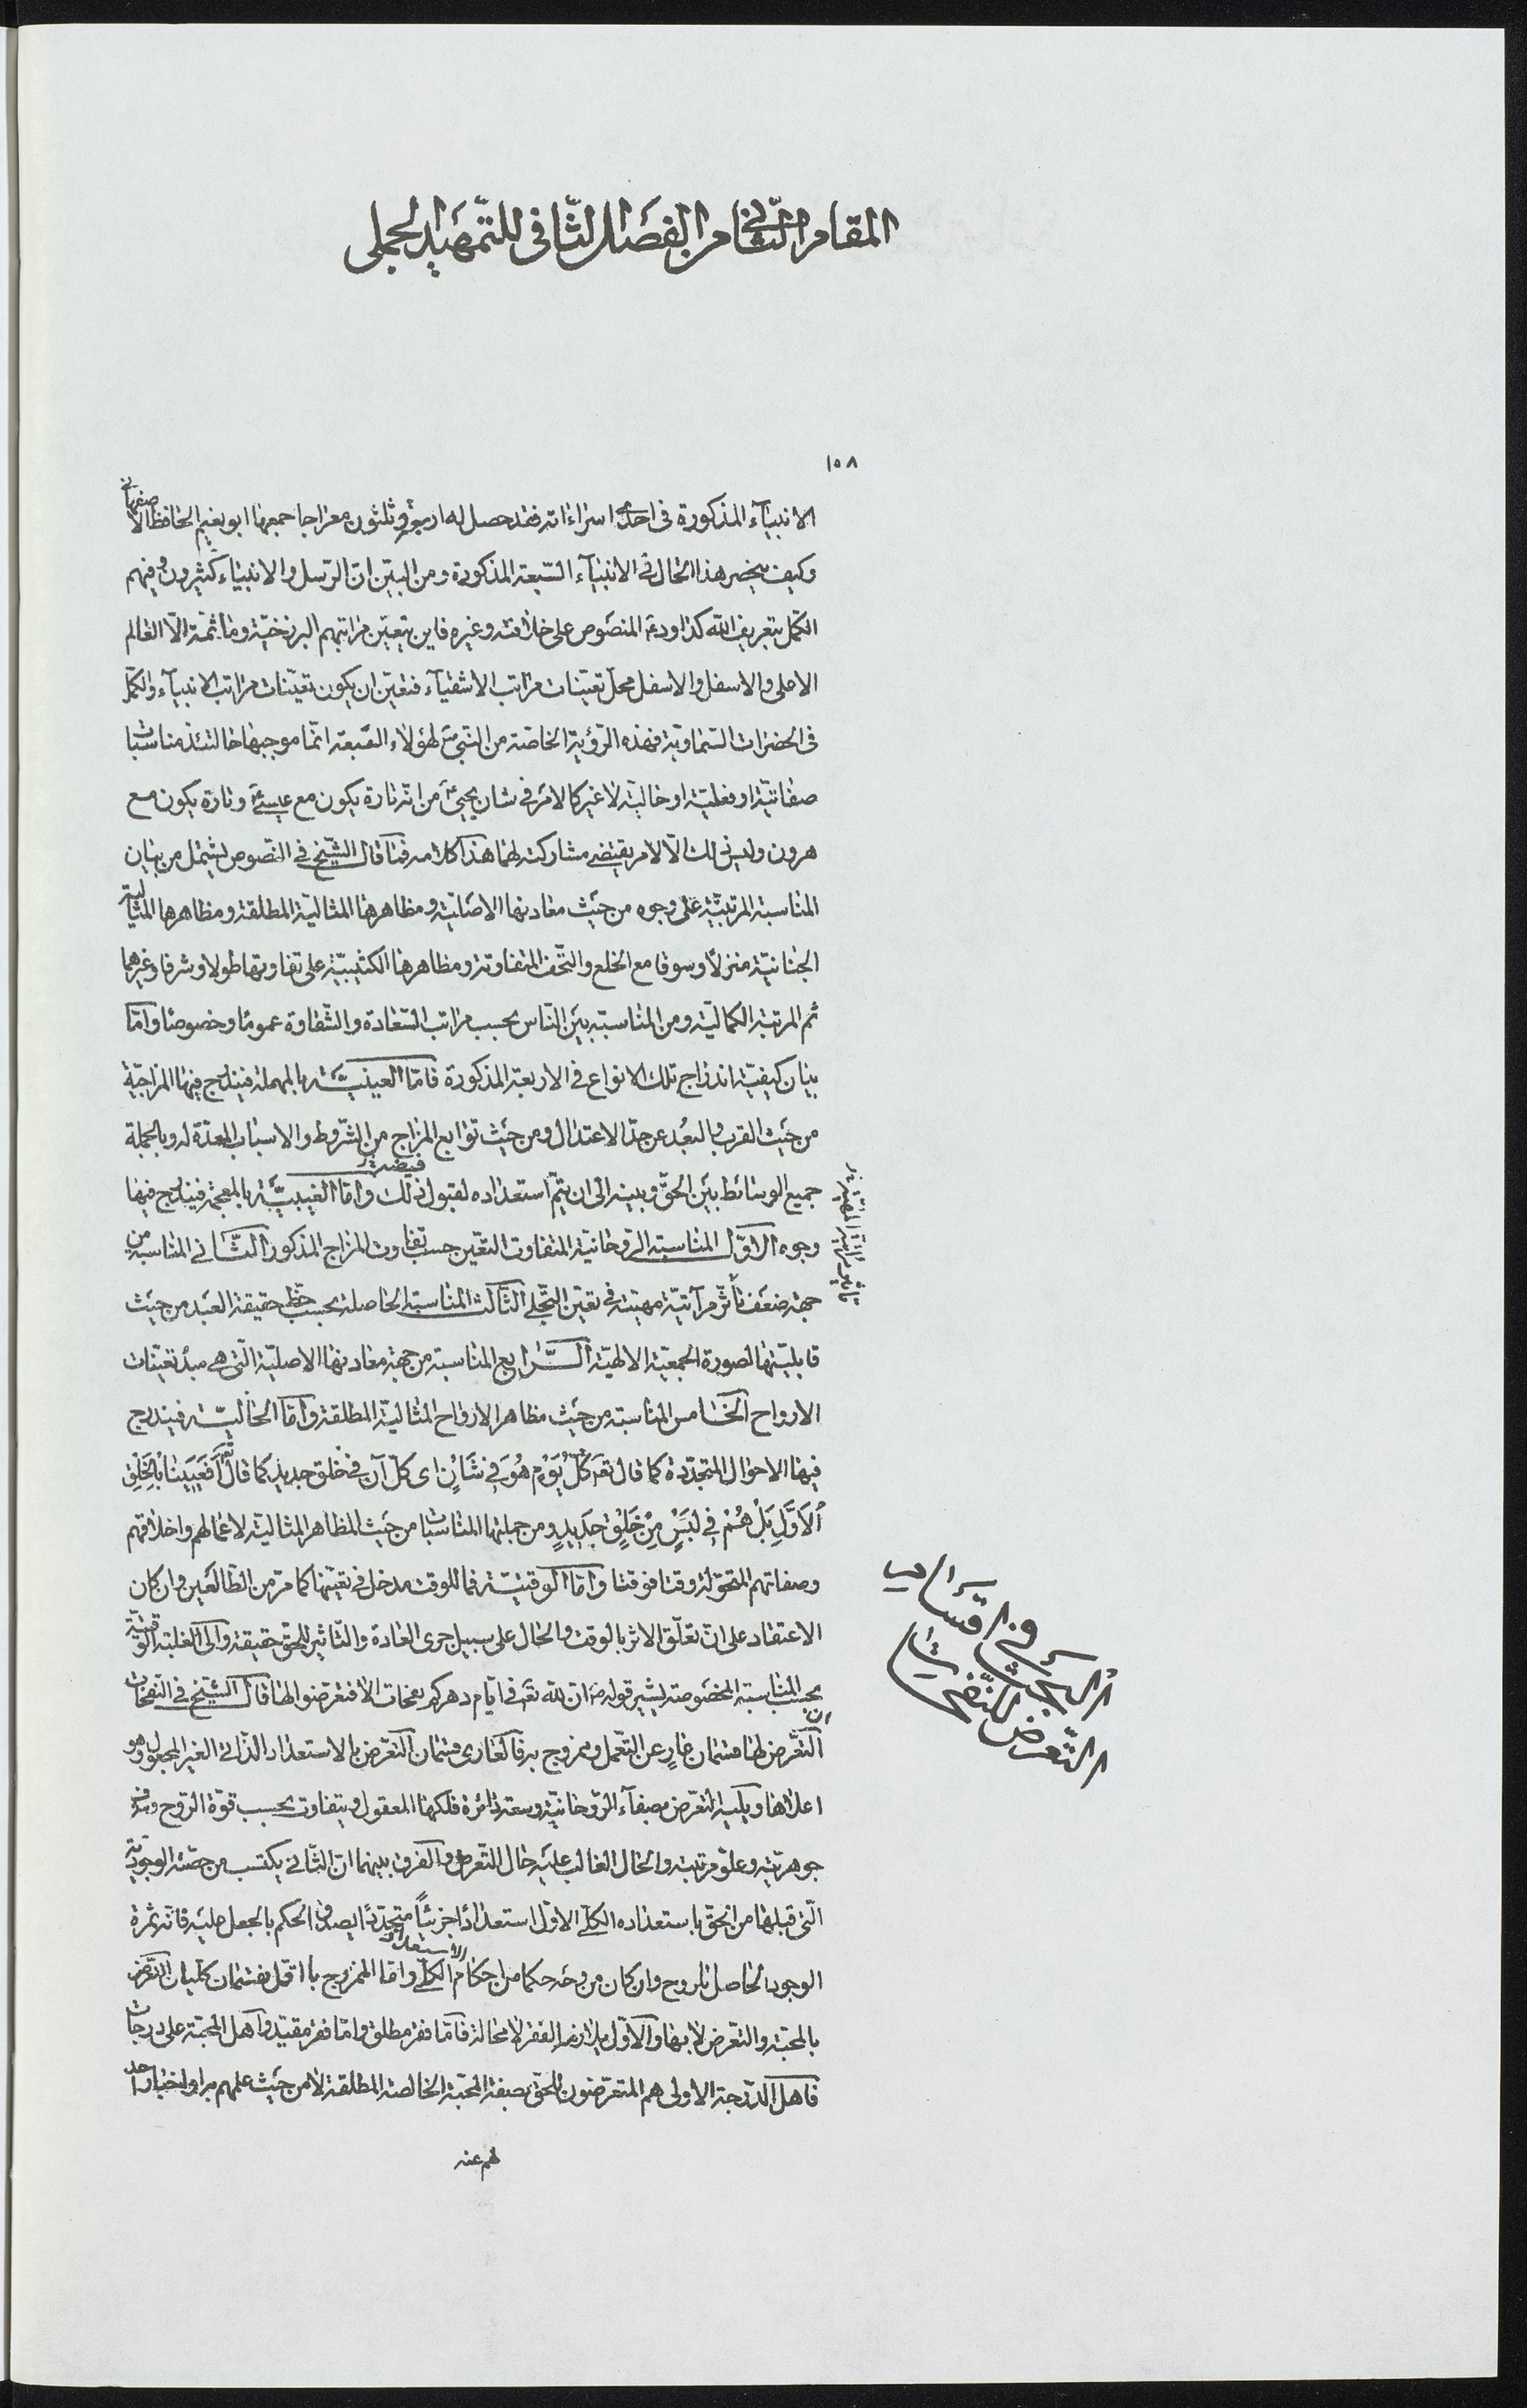 المقام الثانى من الفصل الثانى للتمهيد الجملى
١٥٨
الانبيآء المذكورة فى احدى اسراءاته فقد حصل له اربعة وثلثون معراجا جمعها ابو نعيم الحافظ الاصفهانى
وكيف ينحصر هذا الحال فى الانبيآء السبعة المذكورة ومن البيّن انّ الرّسل والانبيآء كثيرون وفيهم
الكمّل بتعريف الله كداود المنصوص على خلافته وغيره فاين يتعيّن مراتبهم البرزخيّة وما ثمّة الّا العالم
الاعلى والاسفل والاسفل محلّ تعيّنات مراتب الاشقيآء فتعيّن ان يكون تعيّنات مراتب الانبيآء والكمّل
فى الحضرات السّماويّة فهذه الرّؤية الخاصّة من النبى لهؤلاء السّبعة انّما موجبها حالتئذ مناسبات
صفاتيّة او فعليّة او حاليّة لا غير كالامر فى شان يحيى من انّه تارة يكون مع عيسى وتارة يكون مع
هرون وليس ذلك الّا لامر يقتضى مشاركته لهما هذا كلامه فما قال الشّيخ فى النّصوص يشتمل من بيان
المناسبة المرتبيّة على وجوه من حيث معادنها الاصليّة ومظاهرها المثاليّة المطلقة ومظاهرها المثاليّة
الجنانيّة منزلا وسوقا مع الخلع والتّحف المتفاوتة ومظاهرها الكثيبيّة على تفاوتها طولا وشرفا وغيرهما
ثم المرتبة الكماليّة ومن المناسبة بين النّاس بحسب مراتب السّعادة والشّقاوة عموما وخصوصا وامّا
بيان كيفيّة اندراج تلك الانواع فى الاربعة المذكورة فامّا العينيّة بالمهملة فيندرج فيها المزاجيّة
من حيث القرب والبعد عن حدّ الاعتدال ومن حيث توابع المزاج من الشّروط والاسباب المعدّة له وبالجملة
جميع الوسائط بين الحقّ وبينه الى ان يتمّ استعداده لقبول فيضه ذلك وامّا الغيبيّة بالمعجمة فيندرج فيها
وجوه الاوّل المناسبة الرّوحانيّة المتفاوت التعيّن حسب تفاوت المزاج المذكور الثّانى المناسبة من
جهة ضعف تأثّر مرآتيّة مهيّته فى تعيّن التّجلى الثّالث المناسبة الحاصلة بحسب حظّ حقيقة العبد من حيث
قابليّتها لصورة الجمعيّة الالهيّة الرّابع المناسبة من جهة معادنها الاصليّة الّتى هى مبدء تعيّنات
الارواح الخامس المناسبة من حيث مظاهر الارواح المثاليّة المطلقة وامّا الحاليّة فيندرج
فيها الاحوال المتجدّدة كما قال تعَ كُلَّ يَوْمٍ هُوَ فِي شَأْنٍ اى كلّ آن فى خلق جديد كما قال تعَ أَفَعَيِينَا بِالْخَلْقِ
الْأَوَّلِ بَلْ هُمْ فِي لَبْسٍ مِنْ خَلْقٍ جَدِيدٍ ومن جملتها المناسبات من حيث المظاهر المثاليّة لاعمالهم واخلاقهم
وصفاتهم المتحوّلة وقتا فوقتا وامّا الوقتيّة فما للوقت مدخل فى تعيّنها كما مرّ من الطّالعين وان كان
الاعتقاد على انّ تعلّق الاثر بالوقت والحال على سبيل جرى العادة والتّاثير للحقّ حقيقة والى الغلبة الوقتيّة
بحسب المناسبة المخصوصة يشير قوله انّ لله تعَ فى ايّام دهركم نفحات الا فتعرّضوا لها قال الشّيخ فى النفحات
انّ التعرّض لها قسمان عارٍ عن التّعمّل وممزوج به فالعارى قسمان التعرّض بالاستعداد الذّاتى الغير المجعول وهو
اعلاها ويليه التعرّض بصفآء الرّوحانيّة وسعة دائرة فلكها المعقول ويتفاوت بحسب قوّة الرّوح وشرف
جوهريّته وعلوّ مرتبته والحال الغالب عليه حال التّعرض والفرق بينهما انّ الثّانى يكتسب من حصّته الوجوديّة
الّتى قبلها من الحقّ باستعداده الكلّى الاوّل استعدادا جزئيّاً متجدّدا يصدق الحكم بالجعل عليه فانّه ثمرة
الوجود الحاصل للروح وان كان من وجه حكما من احكام الاستعداد الكلّى وامّا الممزوج بالتعمّل فقسمان كلّيان التعرّض
بالمحبّة والتعرّض لا بها والاوّل يلازمه الفقر لا محالة فامّا فقر مطلق وامّا فقر مقيّد واهل المحبّة على درجات
فاهل الدّرجة الاولى هم المتعرّضون للحقّ بصفة المحبّة الخالصة المطلقة لا من حيث علمهم به او اخبار احد
لهم عنه
البحث فى اقسام
التّعرض للنّفحات